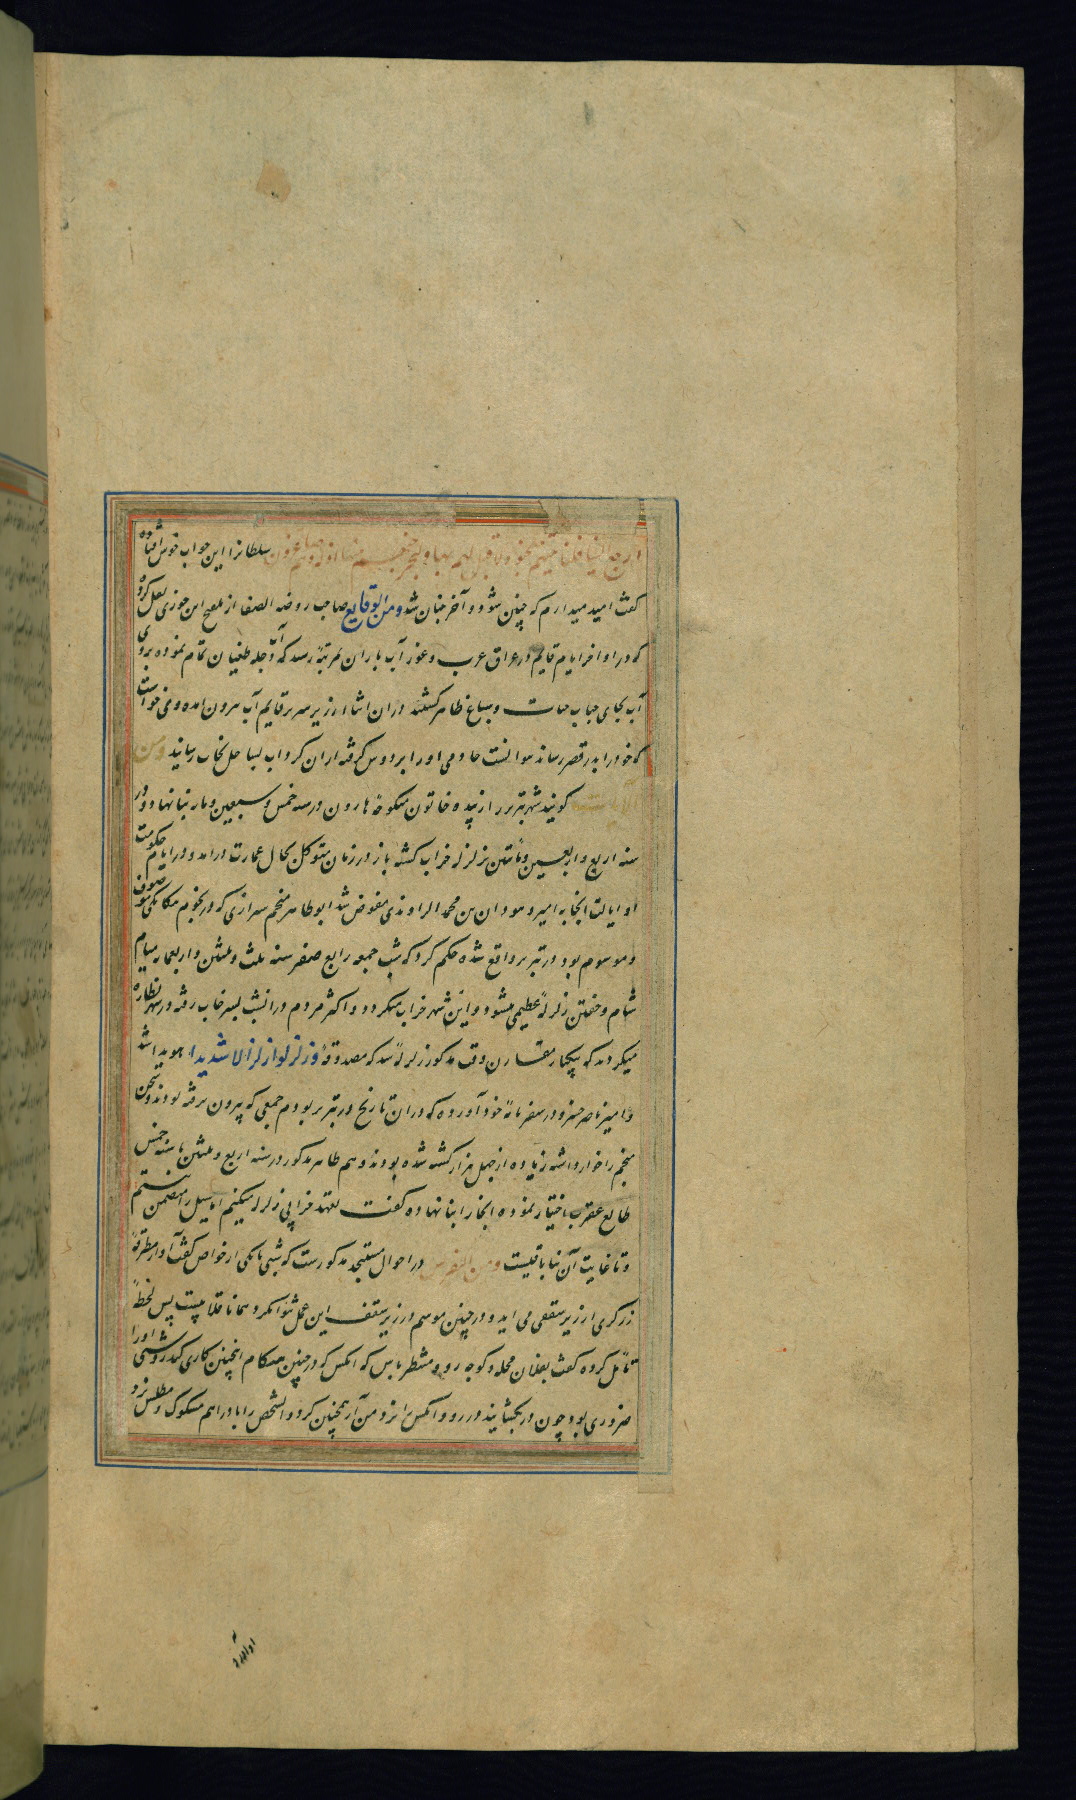 ارجع الیهم فلنأتینهم بجنود لا قبل لهم بها ولنخرجنهم منها اذلة وهم صاغرون سلطانرا این جواب خوش افتاده
گفت امید میدارم که چنین شود و آخر چنان شد ومن الوقایع صاحب روضه الصفا از ابن جوزی نقل کرده
که در اواخر ایام قایم در عراق عرب وغور آب باران بمرتبهٔ رسید که آب دجله طغیان تمام نموده بر روی
آب بجای حباب حیات وسباع ظاهر گشتند دران اثنا از زیر سریر قایم آب بیرون آمده ومی خواست
که خود را بدر قصر رساند نتوانست خادمی اورا بر دوش گرفته ازان گرداب بساحل نجات رسانید ومن
گویند شهر تبریز را زبیده خاتون منکوحهٔ هارون در سنه خمس وسبعین ومایه بنا نهاد و در
سنه اربع واربعین ومأتین بزلزله خراب گشته باز در زمان متوکل بحال عمارت درآمد ودر ایام حکومت
او ایالت آنجا به امیر وهسودان بن محمد الراوندی مفوض شد ابوطاهر منجم شیرازی که در نجوم مکانیکی موصوف
وموسوم بود در تبریز واقع شده حکم کرد که شب جمعه رابع صفر سنه ثلث وثلثین واربعمایه میان
شام وخفتن زلزلهٔ عظیمی میشود واین شهر خراب میگردد واکثر مردم درانشب بسرخاب رفته در شهر نظاره
میکردند که بیکبار مقارن وقت مذکور زلزلهٔ شد که مصدوقهٔ وزلزلوا زلزالا شدیدا هویدا شد
وامیر ناصر خسرو در سفرنامهٔ خود آورده که دران تاریخ در تبریز بودم جمعی که بیرون نرفته بودند وسخن
منجم را خوار داشته زیاده از چهل هزار کشته شده بودند وهم طاهر مذکور در سنه اربع وثلثین باسنه خمس
طالع عقرب اختیار نموده آنجا را بنا نهاده گفت تعهد خرابی زلزله میکنم اما سیل را متضمن نیستم
وتا غایت آن بنا باقیست ومن در احوال مستنجد مذکورست که شبی با یکی از خواص گفت آواز مطرقهٔ
زرگری از زیر سقفی می آید ودر چنین موسم در زیر سقف این عمل نتوان کرد همانا قلابیست پس لحظهٔ
تأمل کرده گفت بفلان محله وکوچه رو ومنتظر باش که آنکس که در چنین هنگام اینچنین کاری کند روشنی اورا
ضروری بود چون در بکشایند در رو وآنکس را نزد من آر همچنین کرد وآنشخص را با دراهم مسکوک ومطلس نزد